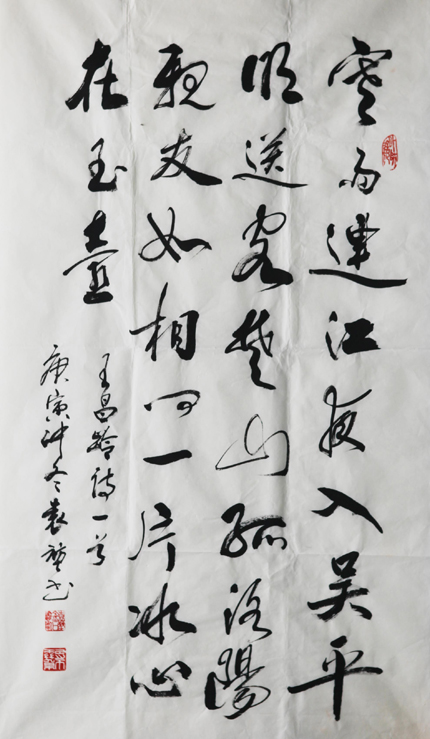 寒雨連江夜入吴平
明送客楚山孤洛陽
親友如相问一片冰心
在玉壶
王昌龄诗一首
庚寅冲冬袁 书